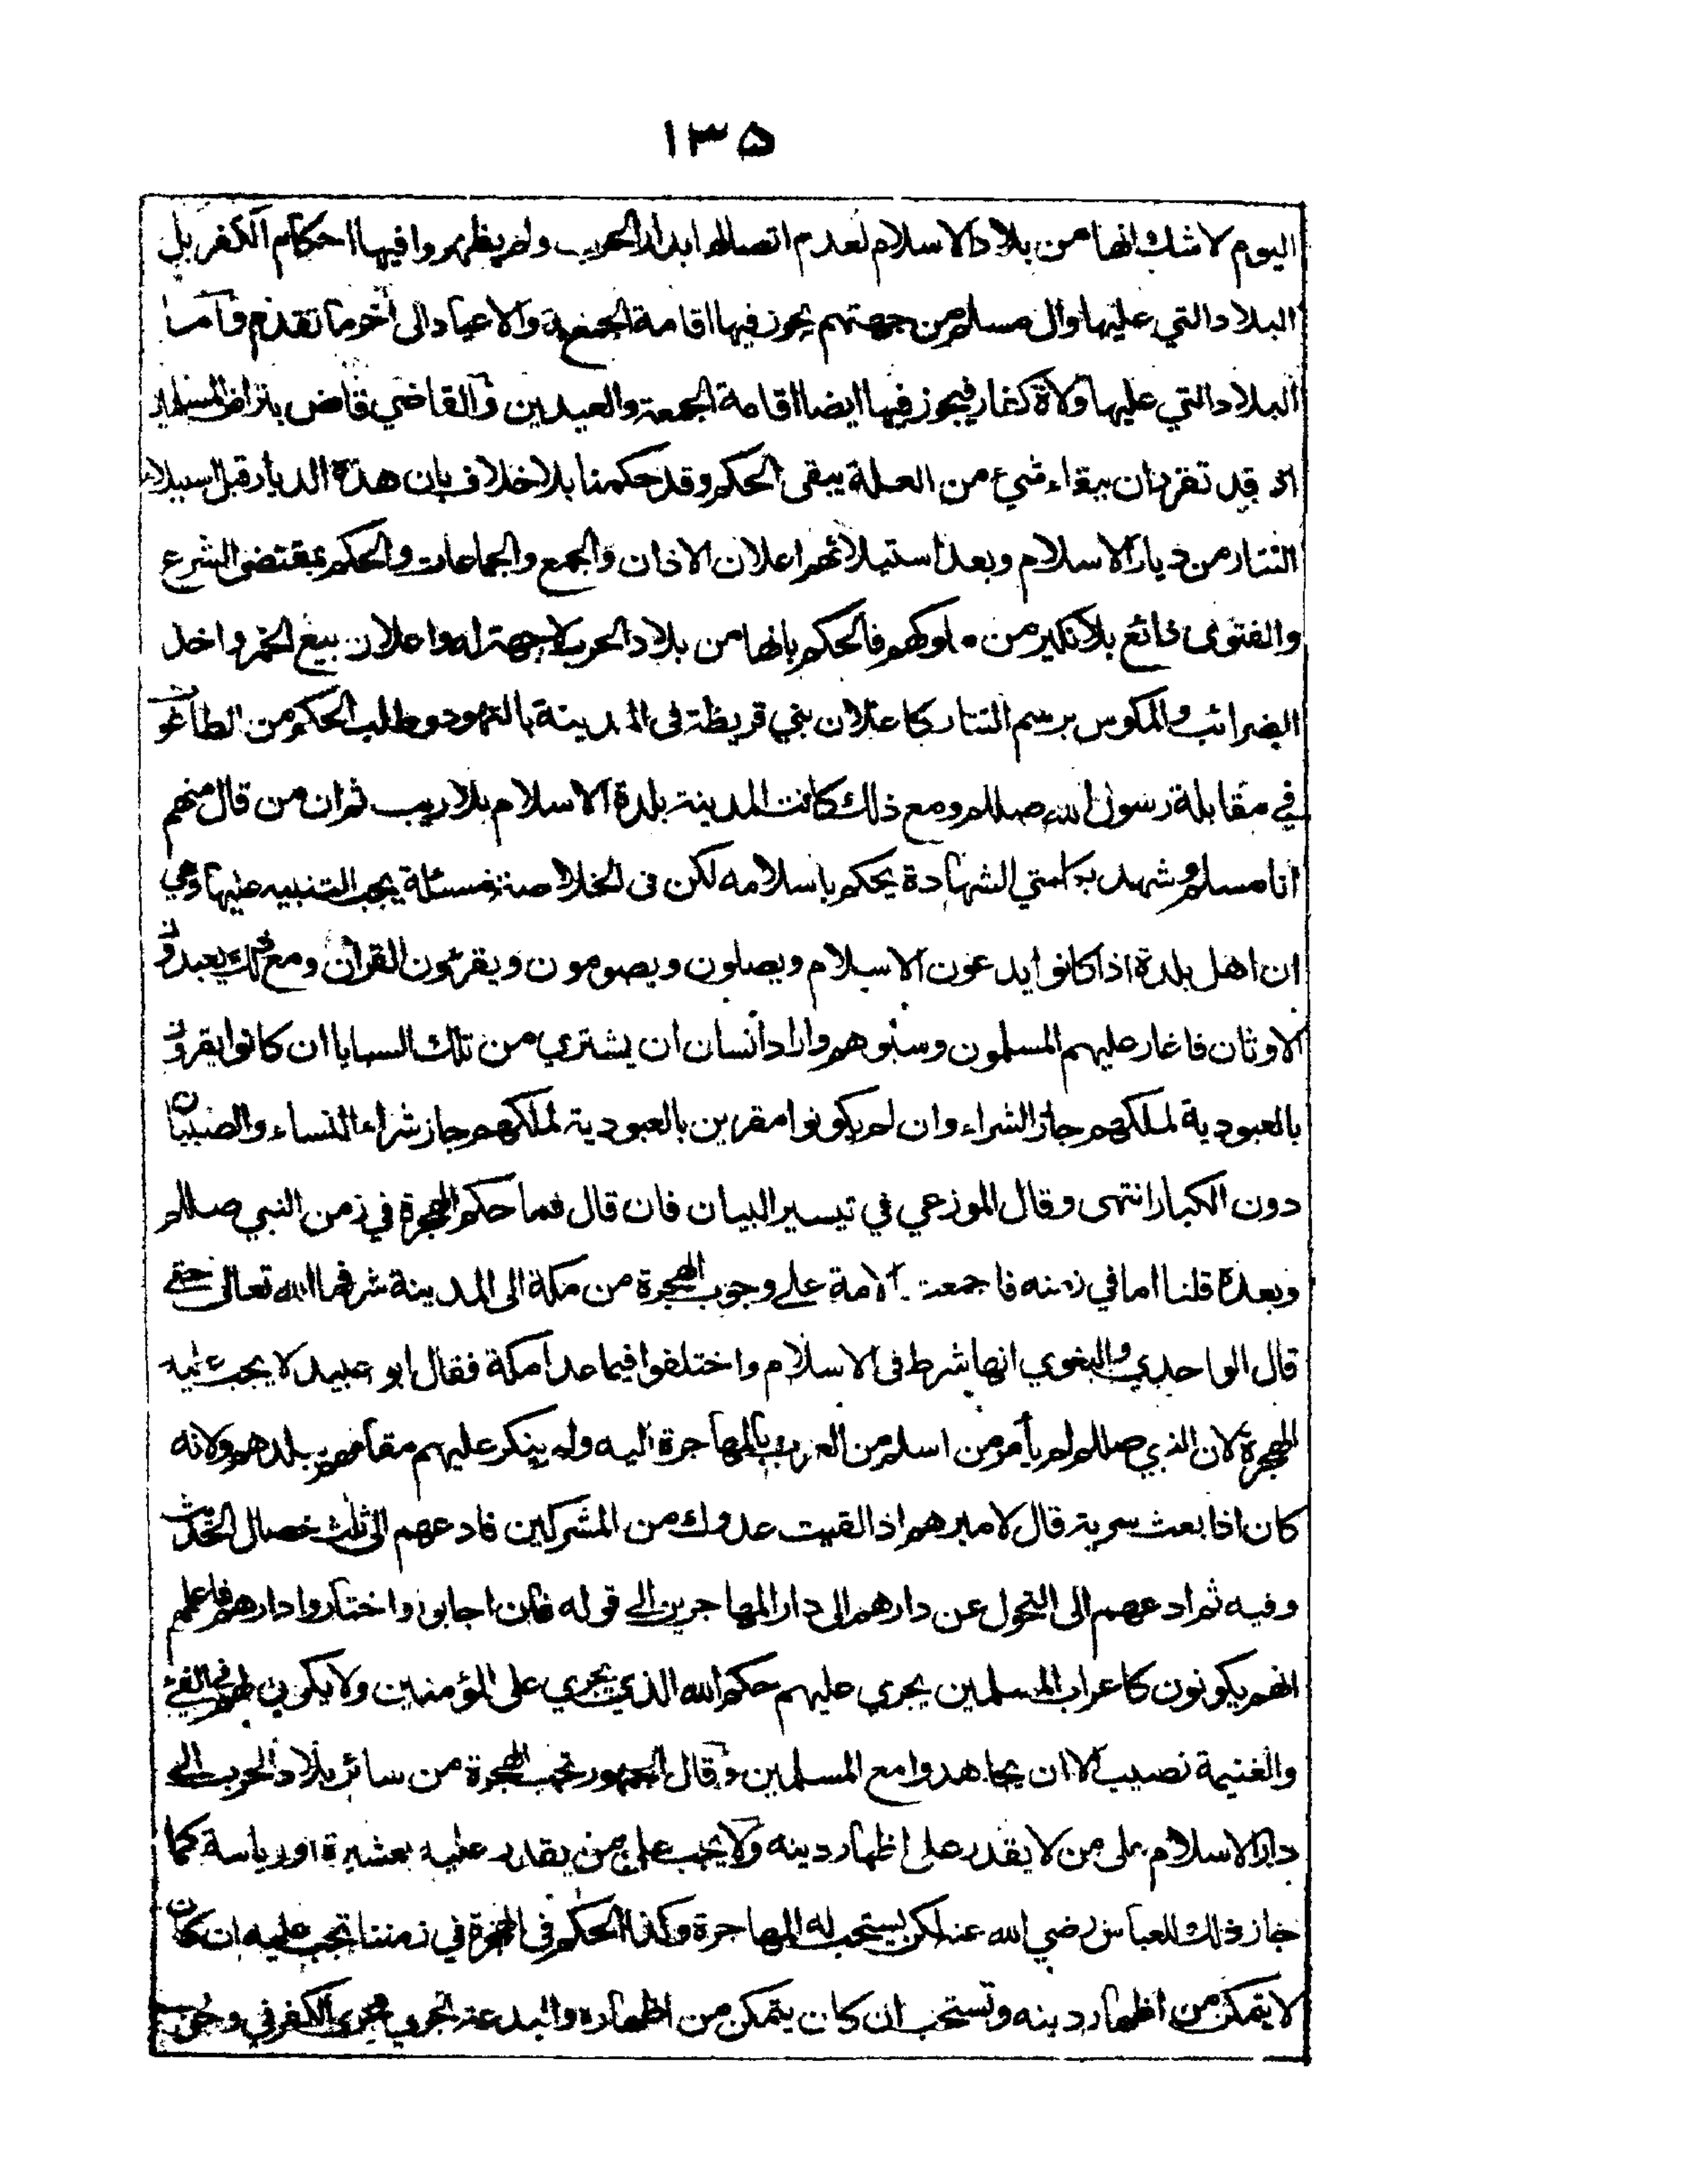 ١٣٥
اليوم لا شك انها من بلاد الاسلام لعدم اتصالها بدار الحرب ولم يظهروا فيها احكام الكفر بل
البلاد التي عليها وال مسلم من جهتهم يجوز فيها اقامة الجمعة والاعياد الى آخر ما تقدم واما
البلاد التي عليها ولاة كفار فيجوز فيها ايضا اقامة الجمعة والعيدين والقاضي قاض بتراض المسلمين
اذ قد تقرر ان ببقاء شيء من العلة يبقى الحكم وقد حكمنا بلا خلاف بان هذه الديار قبل استيلاء
التتار من ديار الاسلام وبعد استيلائهم اعلان الاذان والجمع والجماعات والحكم بمقتضى الشرع
والفتوى ذائع بلا نكير من ملوكهم فالحكم بانها من بلاد الحرب لا جهة له واعلان بيع الخمر واخذ
الضرائب والمكوس برسم التتار كاعلان بني قريظة فى المدينة بالتهود وطلب الحكم من الطاغو
في مقابلة رسول الله صللم ومع ذلك كانت المدينة بلدة الاسلام بلا ريب ثم ان من قال منهم
انا مسلم وشهد بكلمتي الشهادة يحكم باسلامه لكن فى الخلاصة مسئلة يجب التنبيه عليها وهي
ان اهل بلدة اذا كانوا يدعون الاسلام ويصلون ويصومون ويقرئون القرآن ومع ذلك يعبدون
الاوثان فاغار عليهم المسلمون وسبوهم واراد انسان ان يشتري من تلك السبايا ان كانوا يقرون
بالعبودية لملكهم جاز الشراء وان لم يكونوا مقرين بالعبودية لملكهم جاز شراء النساء والصبيان
دون الكبار انتهى وقال الموزعي في تيسير البيان فان قال فما حكم الهجرة في زمن النبي صللم
وبعده قلنا اما في زمنه فاجمعت الامة على وجوب الهجرة من مكة الى المدينة شرفها الله تعالى حتى
قال الواحدي والبغوي انها شرط فى الاسلام واختلفوا فيما عدا مكة فقال ابو عبيد لا يجب عليه
الهجرة لان النبي صللم لم يأمر من اسلم من العرب بالمهاجرة اليه ولم ينكر عليهم مقامهم ببلدهم ولانه
كان اذا بعث سرية قال لاميرهم اذا لقيت عدوك من المشركين فادعهم الى ثلث خصال الحديث
وفيه ثم ادعهم الى التحول عن دارهم الى دار المهاجرين الى قوله فان اجابوا واختاروا دارهم فاعلمهم
انهم يكونون كاعراب المسلمين يجري عليهم حكم الله الذي يجري على المؤمنين ولا يكون لهم فى الفئ
والغنيمة نصيب الا ان يجاهدوا مع المسلمين وقال الجمهور تجب الهجرة من سائر بلاد الحرب الى
دار الاسلام على من لا يقدر على اظهار دينه ولا يجب على من يقدر عليه بعشيرة او رياسة كما
جاز ذلك للعباس رضي الله عنه لكن يستحب له المهاجرة وكذا الحكم فى الهجرة في زمننا تجب عليه ان كان
لا يتمكن من اظهار دينه وتستحب ان كان يتمكن من اظهاره والبدعة تجري مجرى الكفر في وجوب